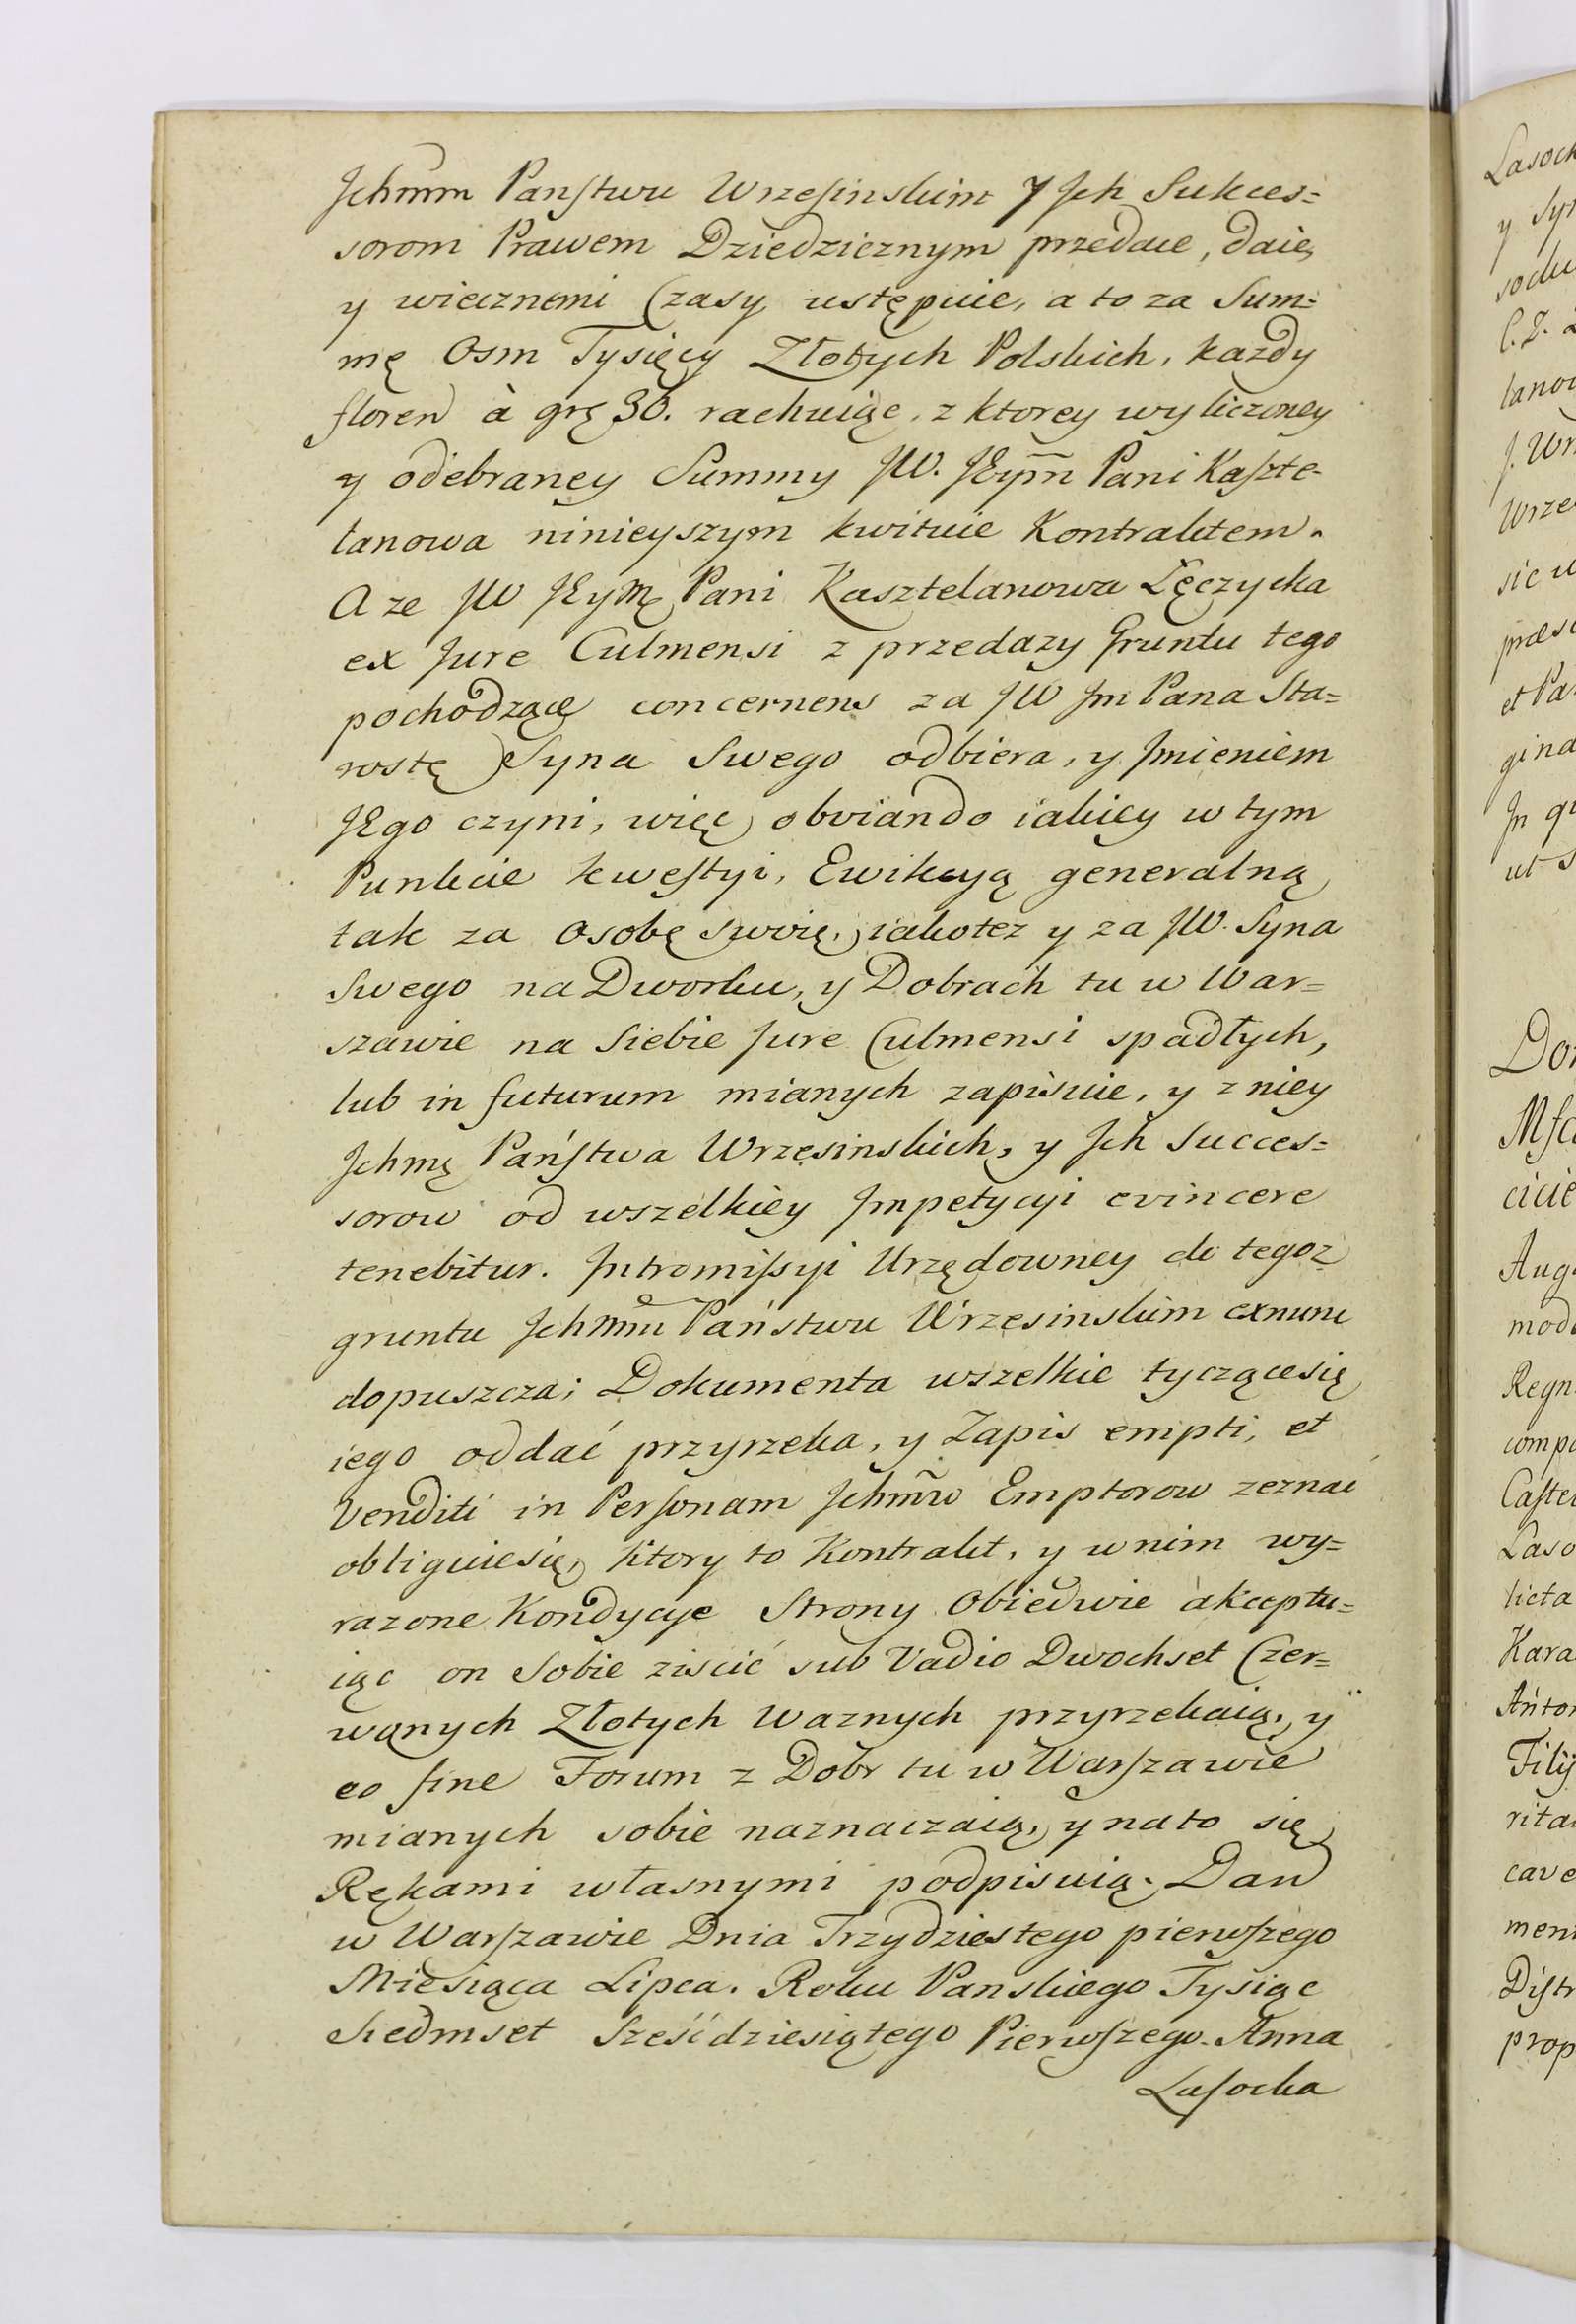 Jchmm Panſtwu Wrzeſinskim y Jch Sukces=
sorom Prawem Dziedzicznym przedaie, daie,
y wiecznemi Czasy ustępuie, a to za Sum=
mę Osm Tysięcy Złotych Polskich, każdy
floren à grę 30. rachuiąc, z ktorey wyliczoney
y odebraney Summy JW. JEym̃ Pani Kaſzte-
lanowa ninieyszym kwituie Kontraktem.
A ze JW JEymę Pani Kasztelanowa Lęczycka
ex Jure Culmensi z przedazy Gruntu tego
pochodzącą concernens za JW Jm Pana Sta=
rostę Syna Swego odbiera, y Jmieniem
JEgo czyni, więc obviando iakiey w tym
Punkcie kweſtyi, Ewikcyą generalną
tak za Osobę Swoię, iakotez y za JW. Syna
Swego na Dworku, y Dobrach tu w War=
szawie na Siebie Jure Culmensi spadłych,
lub in futurum mianych zapisuie, y z niey
Jchmę Pańſtwa Wrzesinskich, y Jch Succes=
sorow od wszelkiey Jmpetycyi evincere
tenebitur. Jntromiſsyi Urzędowney do tegoz
gruntu Jchmmu Państwu Wrzesinskim exnunc
dopuszcza; Dokumenta wszelkie tyczącesię
iego oddać przyrzeka, y Zapis empti, et
Venditi in Perſonam Jchmw̃ Emptorow zeznać
obliguiesię, ktory to Kontrakt, y w nim wy=
razone Kondycye Strony Obiedwie akceptu=
iąc on Sobie ziscić sub Vadio Dwochset Czer=
wąnych Złotych Waznych przyrzekaią, y
eo fine Forum z Dobr tu w Warſzawie
mianych sobie naznaczaią, y na to się
Rękami własnymi podpisuią. Dan
w Warſzawie Dnia Trzydziestego pierwſzego
Miesiąca Lipca. Roku Panskiego Tysiąc
Siedmset Sześćdziesiątego Pierwſzego. Anna
Laſocka